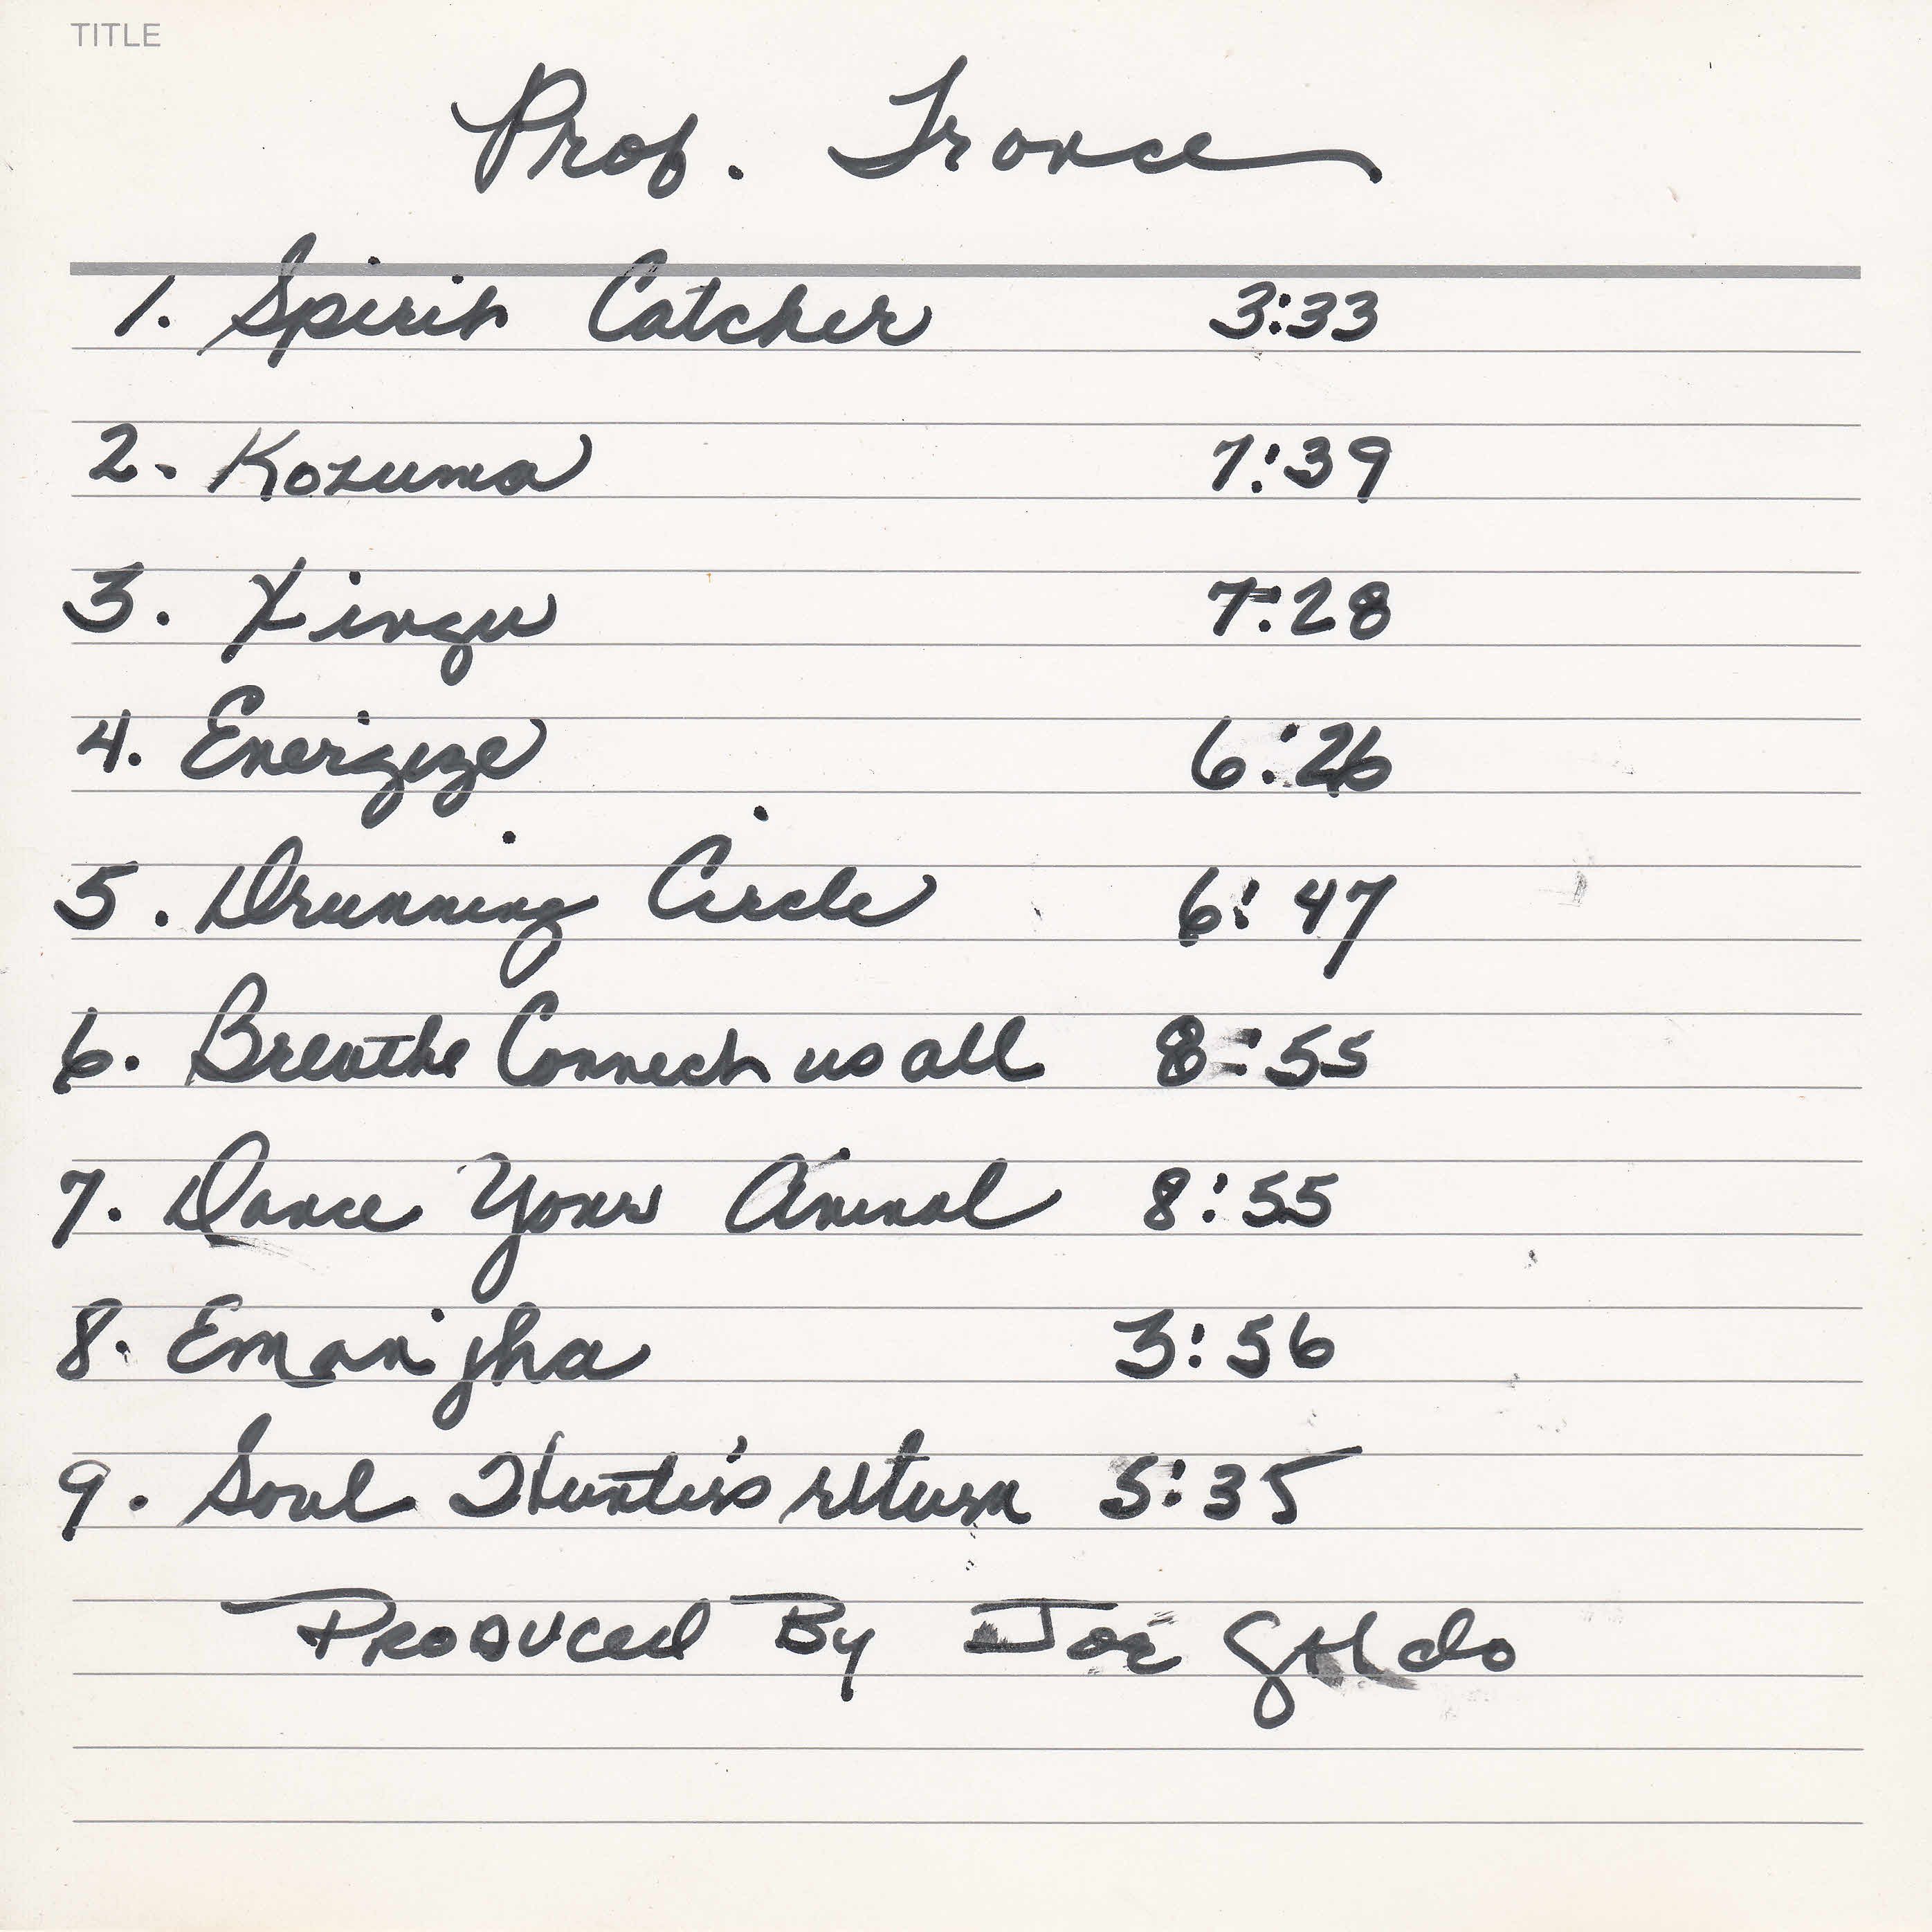 TITLE
Prof. Trance
1. Spirit Catcher 3:33
2. Kozuma 7:39
3. Xingu 7:28
4. Energize 6:26
5. Drumming Circle 6:47
6. Breathe Connect us all 8:55
7. Dance Your Animal 8:55
8. Emanjha 3:56
9. Soul Hunter's return 5:35
Produced By Joe Galdo